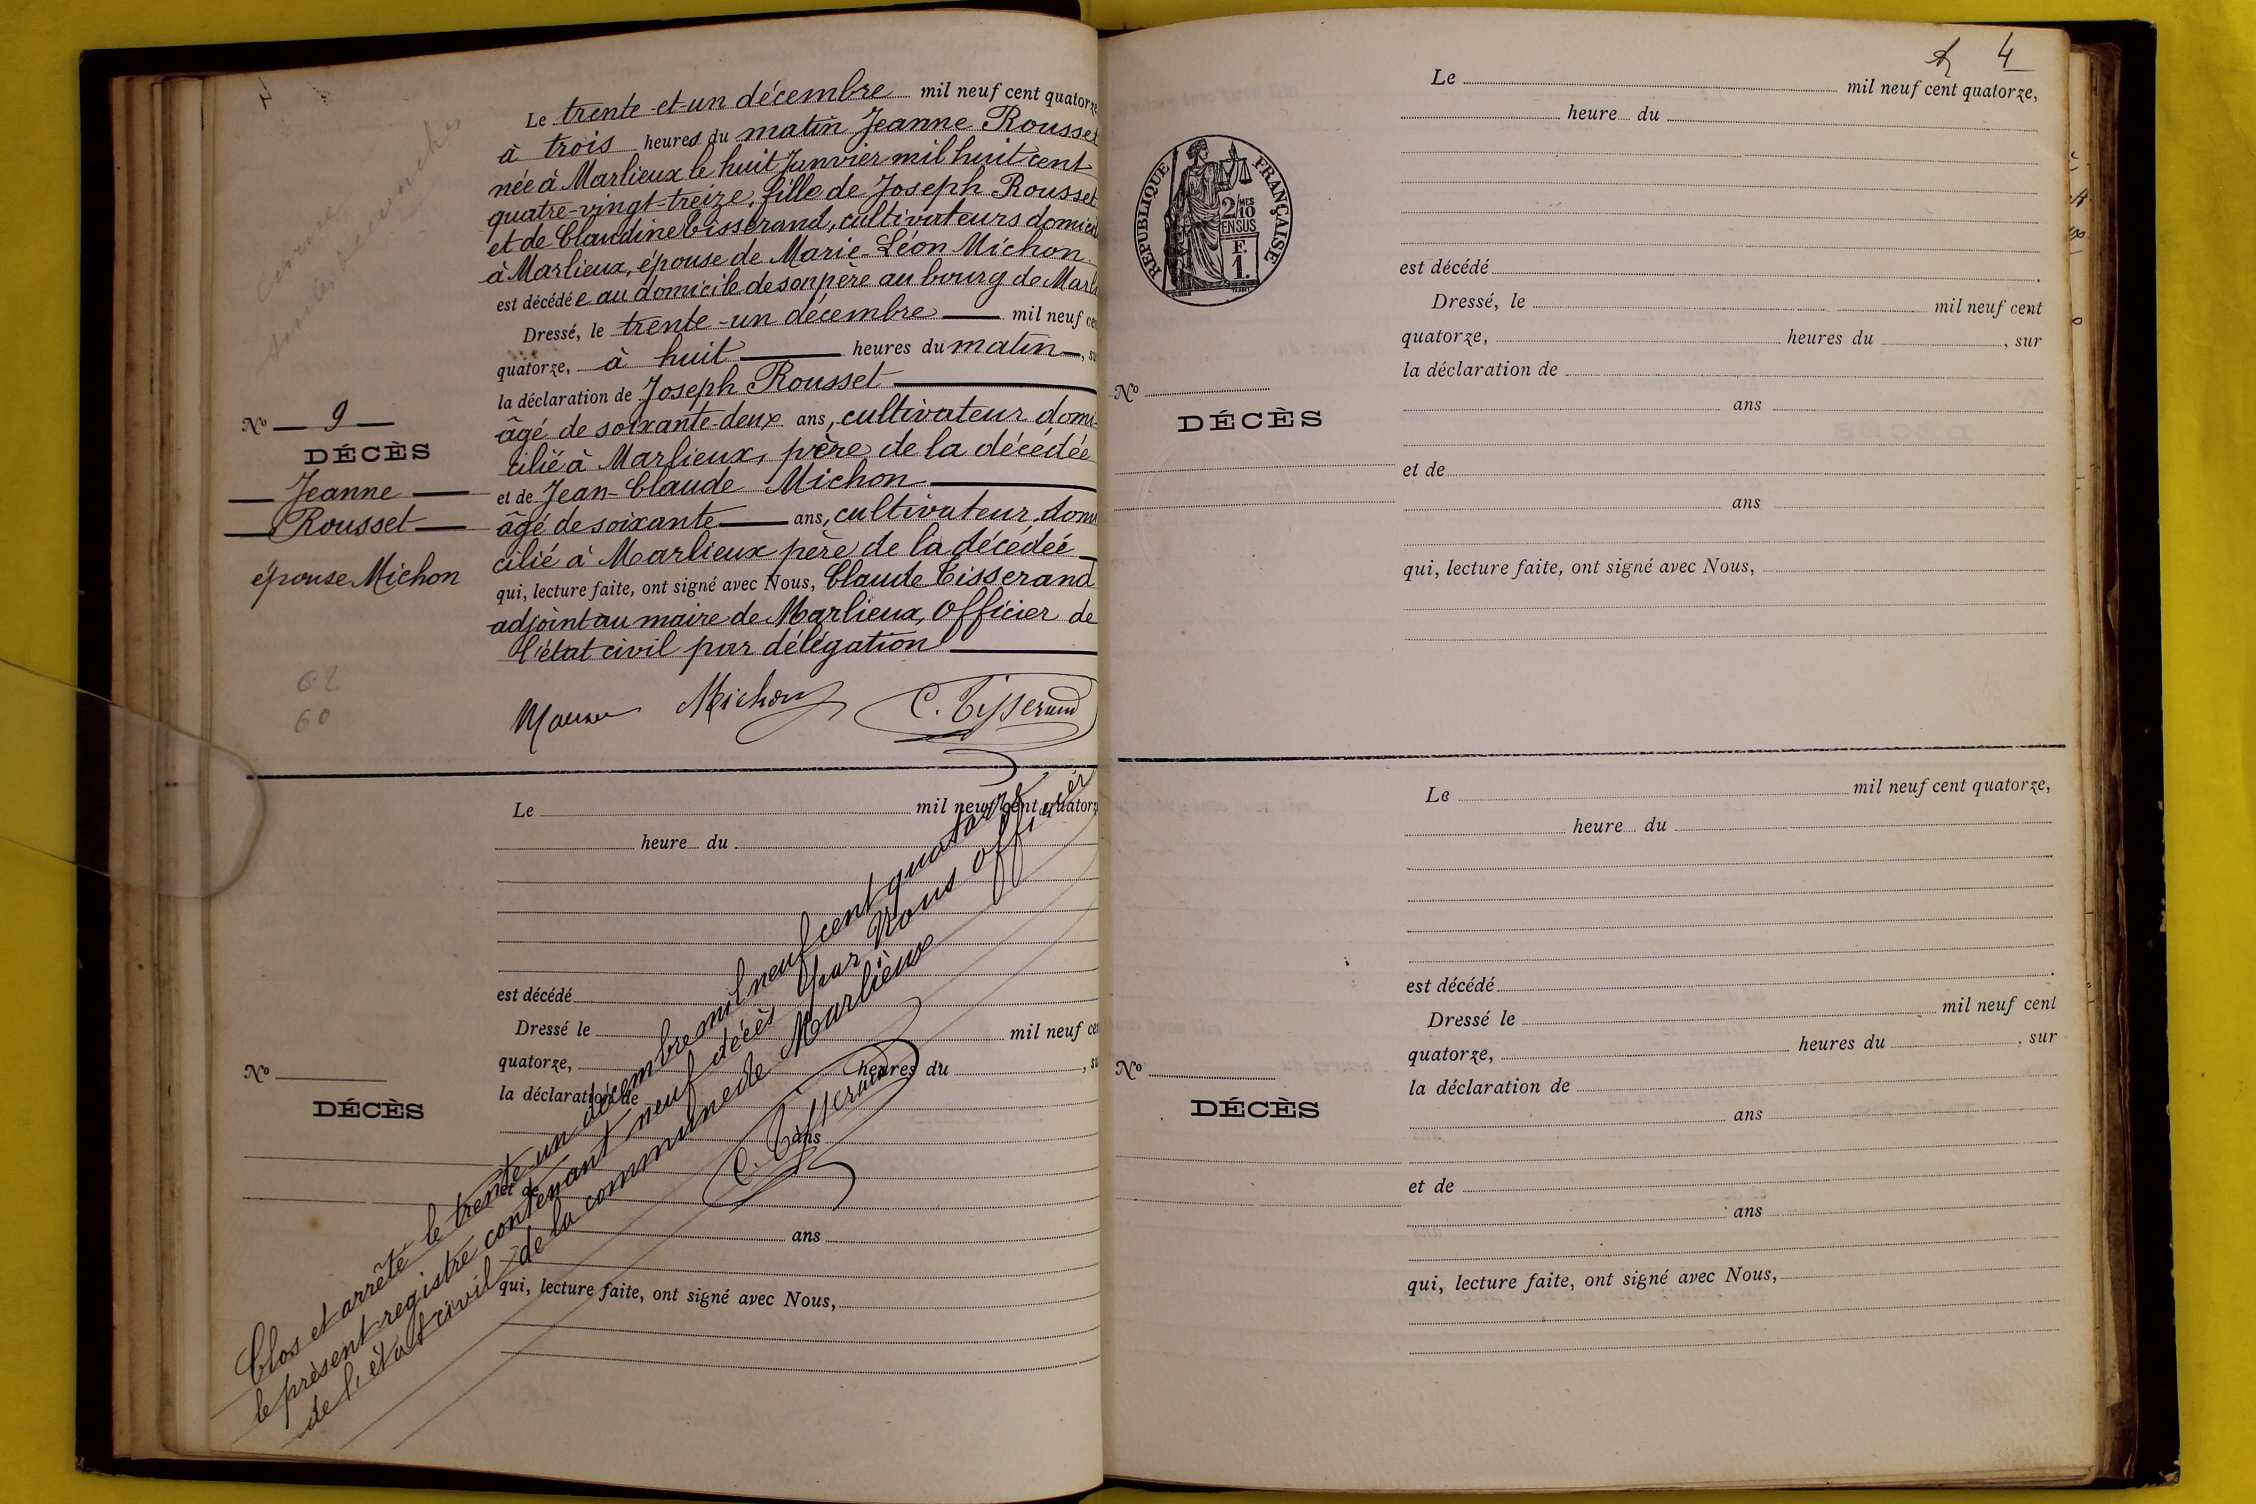 Le trente-et-un décembre mil neuf cent quatorze
à trois heures du matin Jeanne Rousset
née à Marlieux le huit Janvier mil huit cent
quatre-vingt-treize, fille de Joseph Rousset
et de Claudine Tisserand, cultivateurs domicil
à Marlieux, épouse de Marie-Léon Michon
est décédée au domicile de son père au bourg de Marli
Dressé, le trente-un décembre mil neuf ce
quatorze, à huit heures du matin, su
la déclaration de Joseph Rousset
âgé de soixante-deux ans, cultivateur domi-
cilié à Marlieux, père de la décédée
et de Jean-Claude Michon
âgé de soixante ans, cultivateur, domi
cilié à Marlieux père de la décédée
qui, lecture faite, ont signé avec Nous, Claude Tisserand
adjoint au maire de Marlieux, Officier de
l'état civil par délégation
Michon C. Tisserand
No 9
DÉCÈS
Jeanne
Rousset
épouse Michon
62
60
Le mil neuf cent quatorz
heure du
est décédé
Dressé le mil neuf ce
quatorze, heures du , su
la déclaration de
ans
et de
ans
qui, lecture faite, ont signé avec Nous,
No
DÉCÈS
Clos et arrêté le trente un décembre mil neuf cent quatorze
le présent registre contenant neuf décès par Nous officier
de l'état civil de la commune de Marlieux
C. Tisserand
4
RÉPUBLIQUE FRANÇAISE
2/10 MES
EN SUS
F.
1.
Le mil neuf cent quatorze,
heure du
est décédé
Dressé, le mil neuf cent
quatorze, heures du , sur
la déclaration de
ans
et de
ans
qui, lecture faite, ont signé avec Nous,
No
DÉCÈS
Le mil neuf cent quatorze,
heure du
est décédé
Dressé le mil neuf cent
quatorze, heures du , sur
la déclaration de
ans
et de
ans
qui, lecture faite, ont signé avec Nous,
No
DÉCÈS